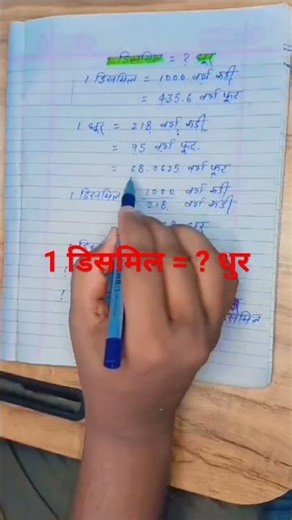 1 डिसमिल = ? धुर
1 डिसमिल = 1000 वर्ग कड़ी
= 435.6 वर्ग फूट
1 धुर = 218 वर्ग कड़ी
= 95 वर्ग फूट
= 68.0625 वर्ग फूट
1 डिसमिल 1000 वर्ग कड़ी
218 वर्ग कड़ी
1 डिसमिल = ? धुर